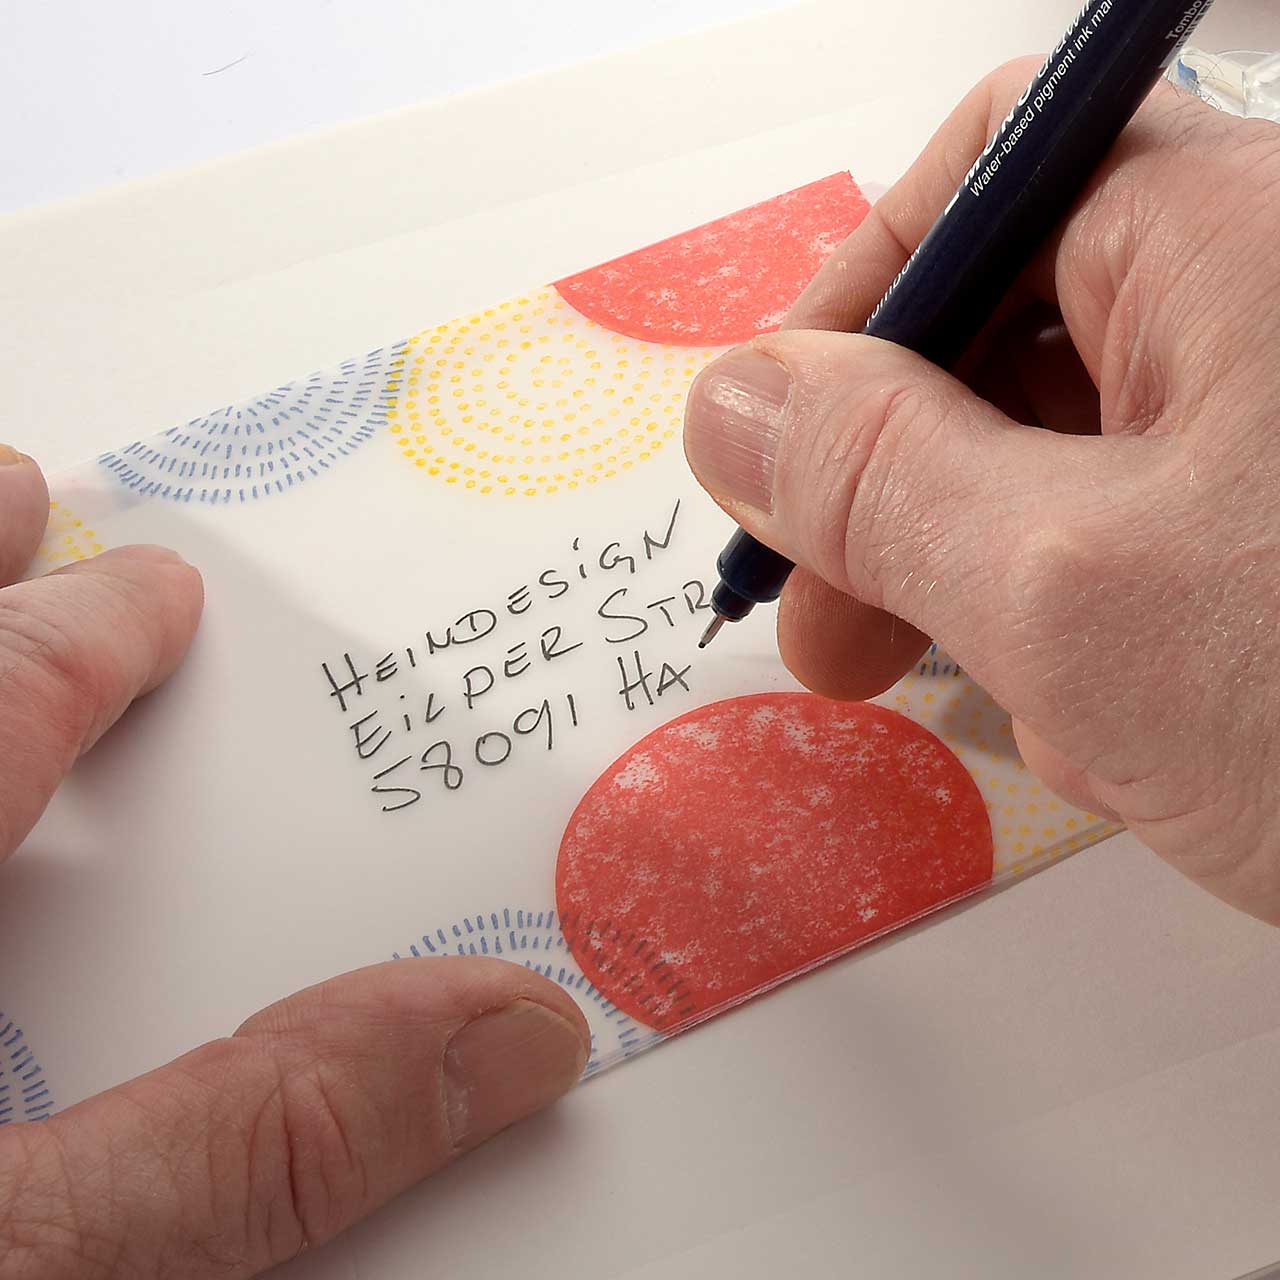 HEINDESIGN
EILPER STR
58091 HA
MONO drawin
Water-based pigment ink mar
Tombow
Tombo